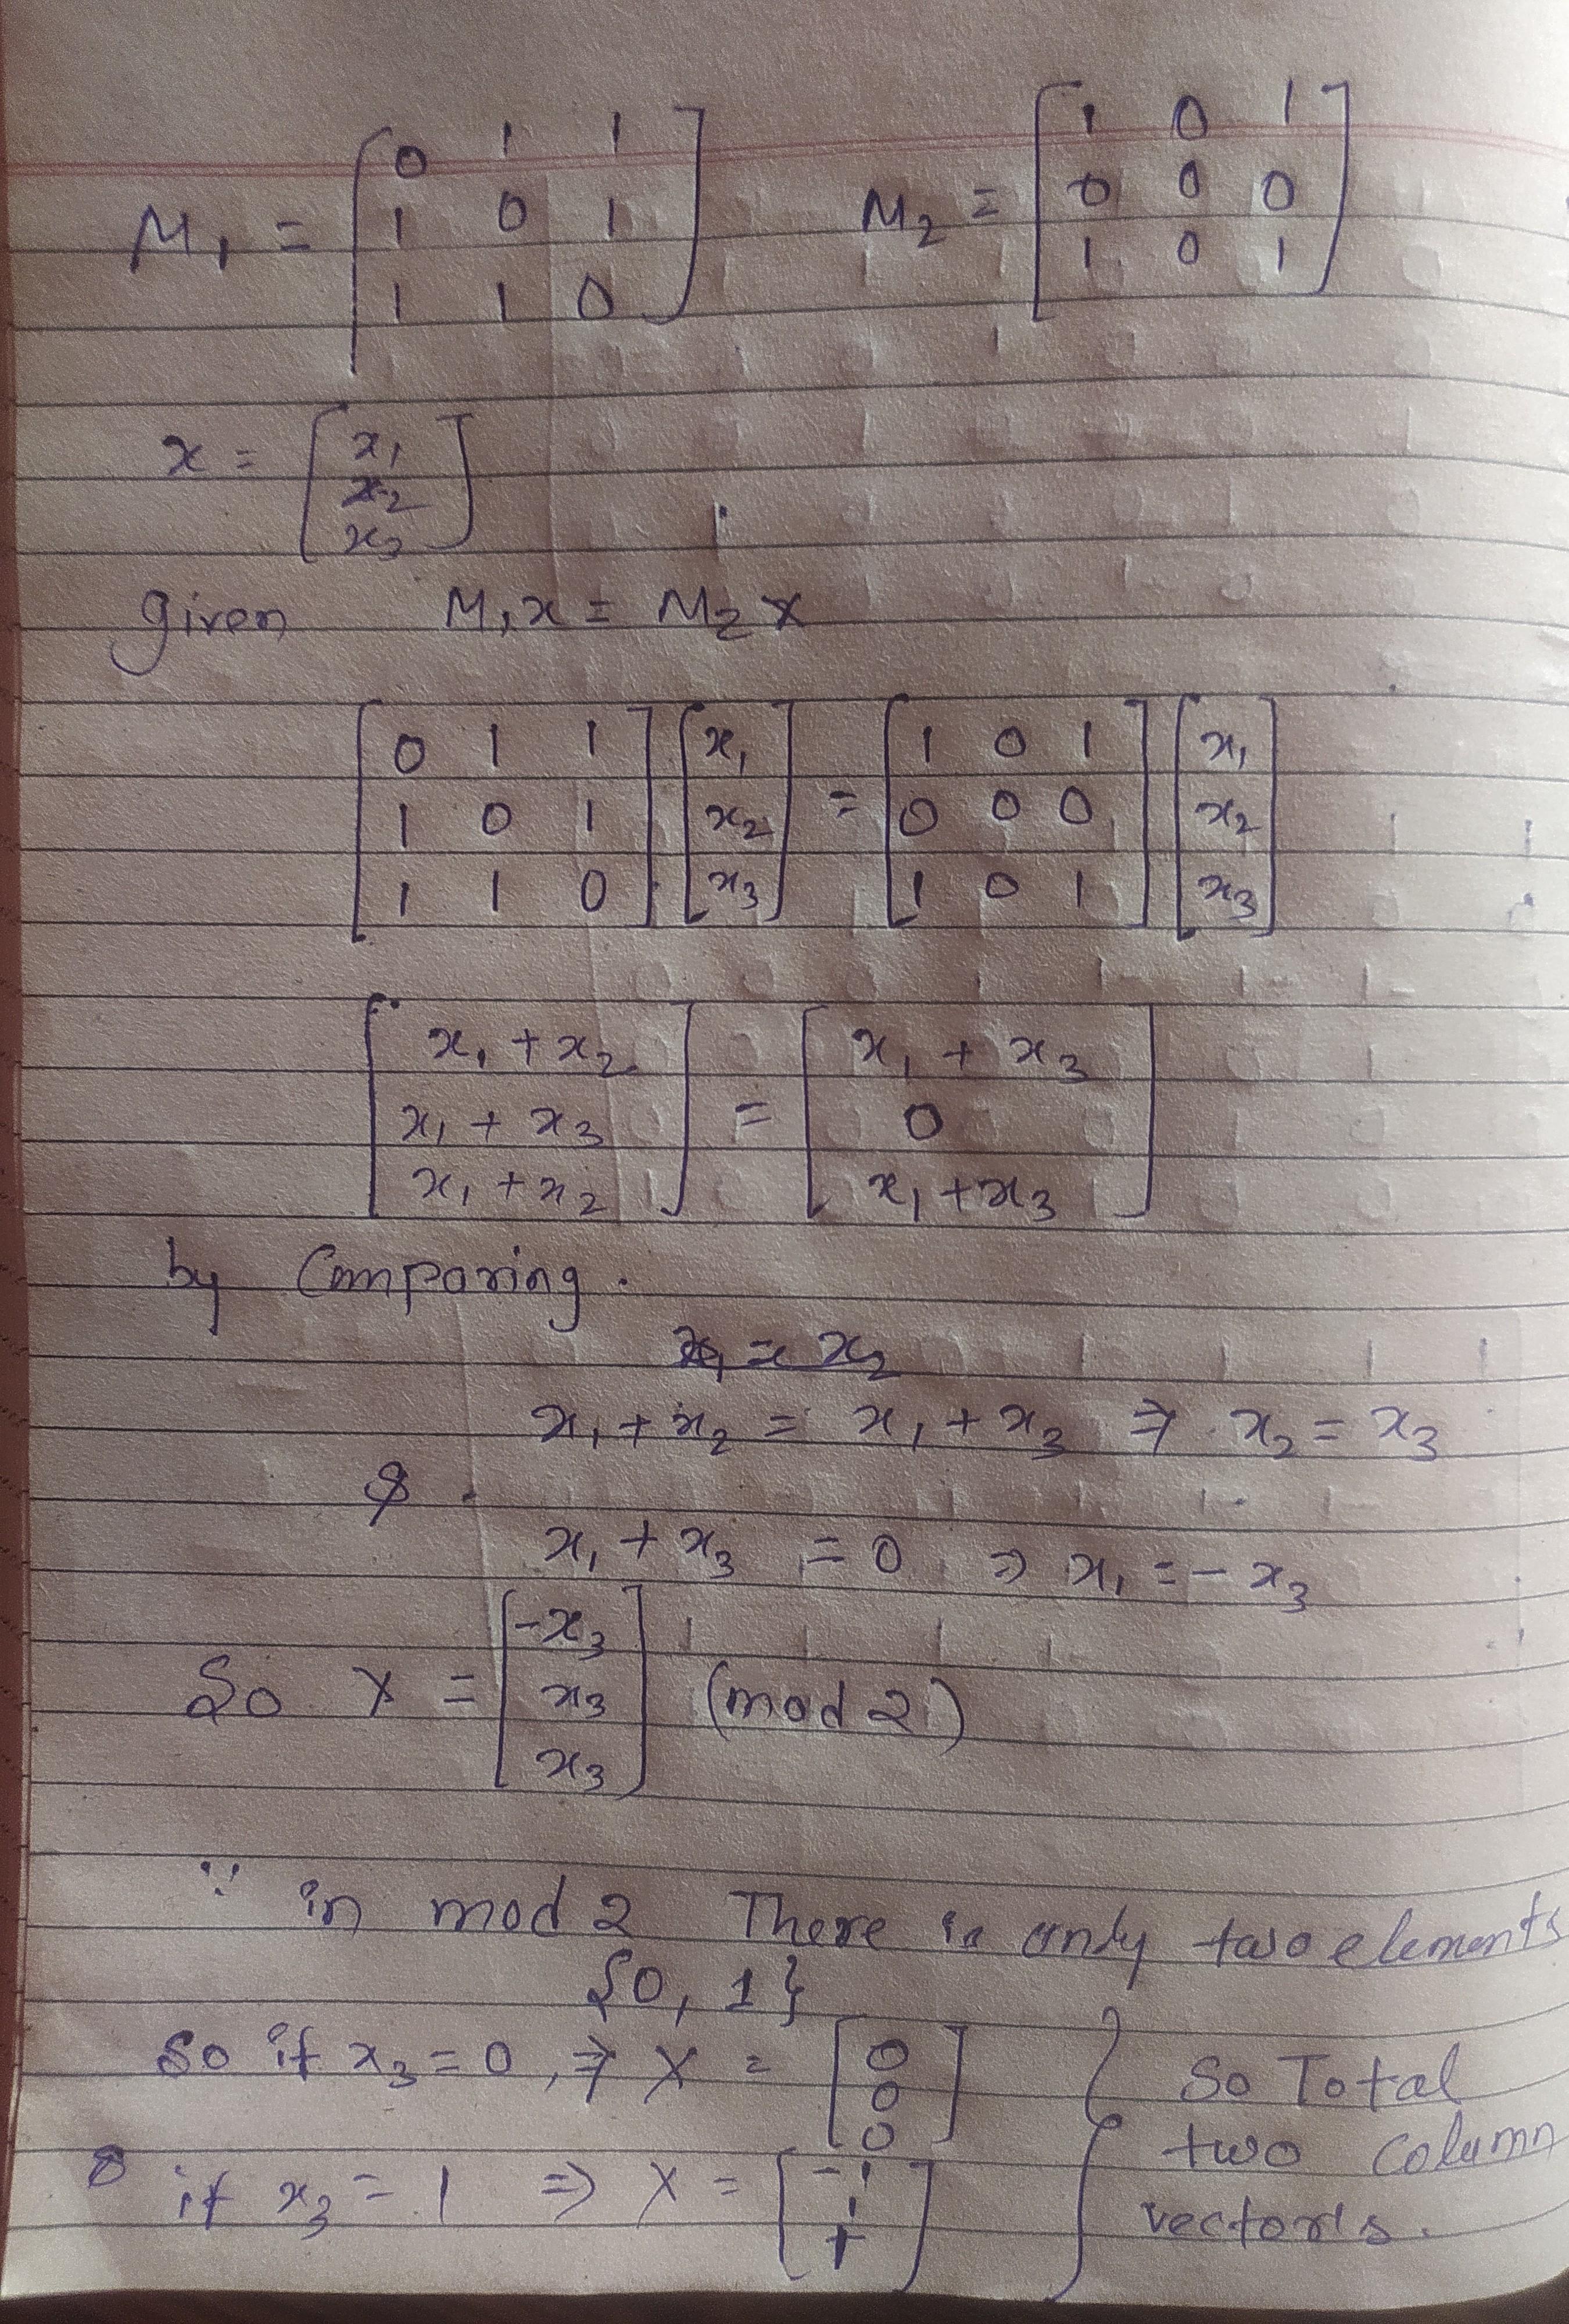 M₁ = [0 1 1; 1 0 1; 1 1 0] M₂ = [1 0 1; 0 0 0; 1 0 1]
x = [x₁; x₂; x₃]
given M₁x = M₂X
[0 1 1; 1 0 1; 1 1 0] [x₁; x₂; x₃] = [1 0 1; 0 0 0; 1 0 1] [x₁; x₂; x₃]
[x₁ + x₂; x₁ + x₃; x₁ + x₂] = [x₁ + x₃; 0; x₁ + x₃]
by Comparing.
x₁ = x₂
x₁ + x₂ = x₁ + x₃ ⇒ x₂ = x₃
&
x₁ + x₃ = 0 ⇒ x₁ = - x₃
So X = [-x₃; x₃; x₃] (mod 2)
∵ in mod 2 There is only two elements
{0, 1}
So if x₃ = 0, ⇒ X = [0; 0; 0]
& if x₃ = 1 ⇒ X = [-1; 1; 1]
} So Total
two column
vectors.